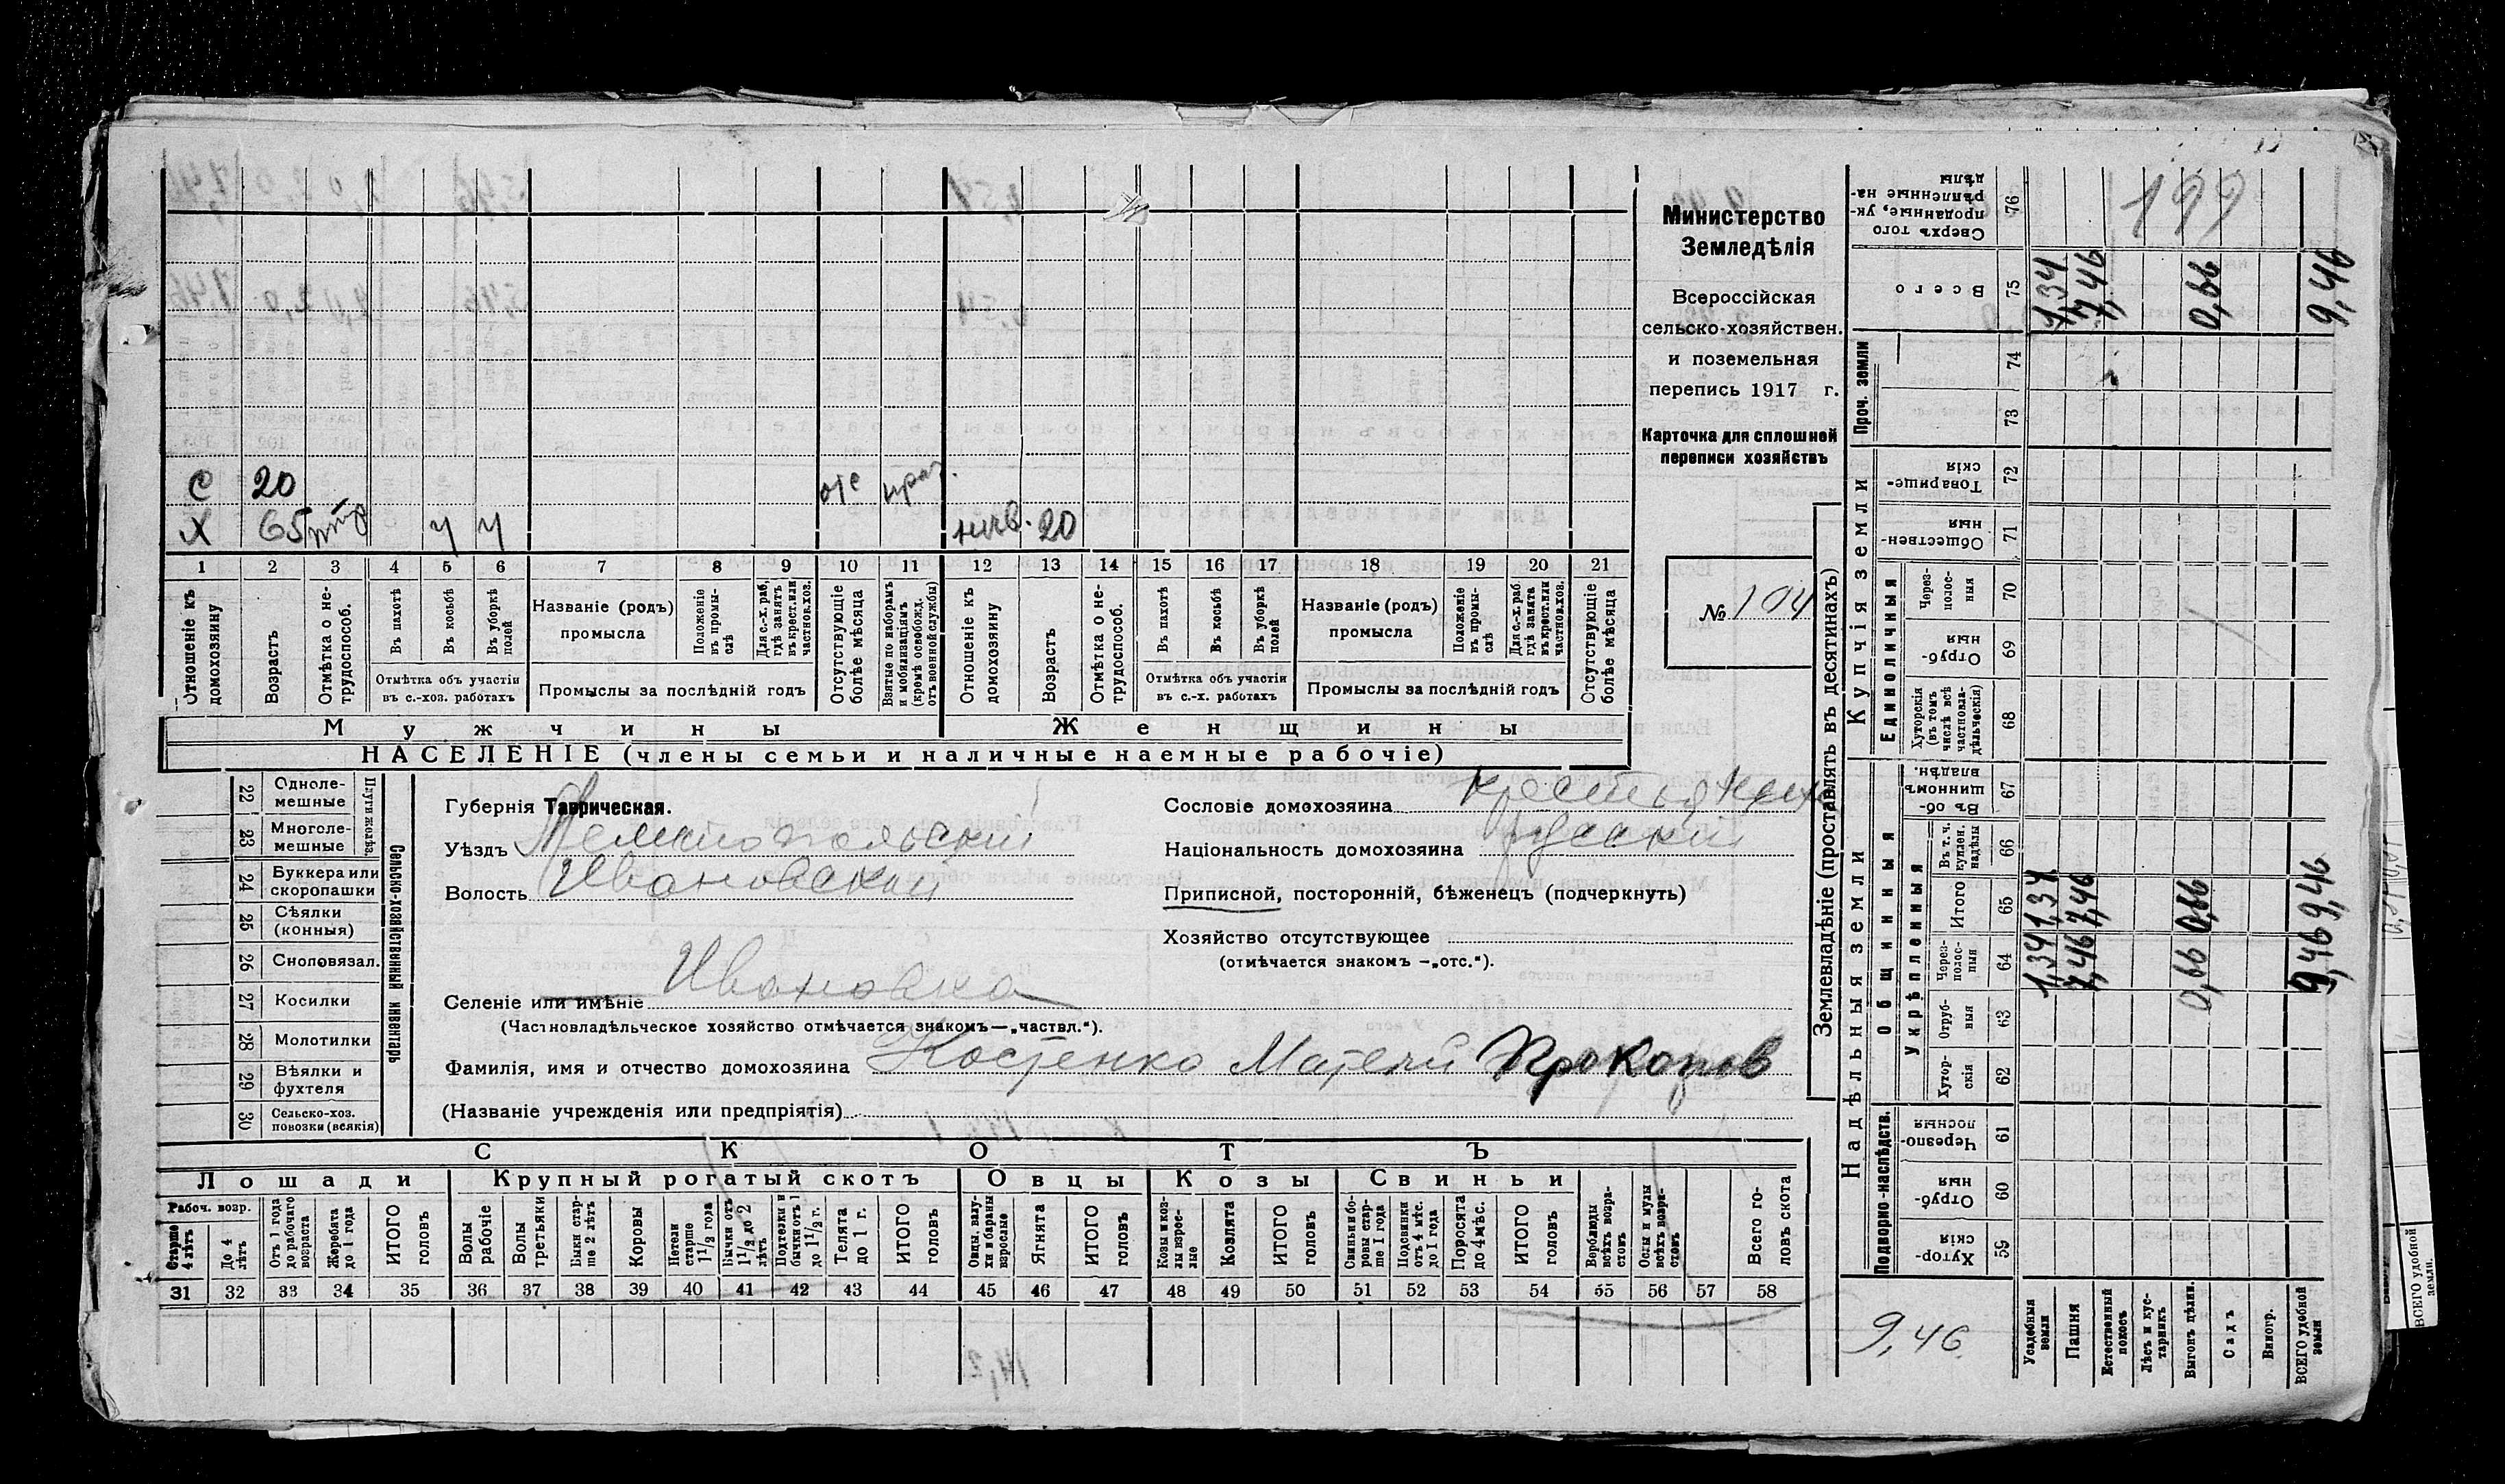 Министерство
Земледѣлія
Всероссійская
сельско-хозяйствен.
и поземельная
перепись 1917 г.
Карточка для сплошней
переписи хозяйствъ
№ 104
199
С 20 отс
Х 65 20
1 2 3 4 5 6 7 8 9 10 11 12 13 14 15 16 17 18 19 20 21
Отношеніе къ домохозяину
Возрастъ
Отмѣтка о не-трудоспособ.
Въ пахотѣ
Въ косьбѣ
Въ уборкѣ полей
Отмѣтка объ участіи въ с.-хоз. работахъ
Названіе (родъ) промысла
Положеніе въ промы-слѣ
Для с.-х. раб, гдѣ занятъ въ крест. или частновл. хоз.
Промыслы за послѣдній годъ
Отсутствующіе болѣе мѣсяца
Взятые по наборамъ и мобилизаціямъ (кромѣ освобожд. отъ военной службы)
Отношеніе къ домохозяину
Возрастъ
Отмѣтка о не-трудоспособ.
Въ пахотѣ
Въ косьбѣ
Въ уборкѣ полей
Отмѣтка объ участіи въ с.-х. работахъ
Названіе (родъ) промысла
Положеніе въ промы-слѣ
Для с.-х. раб гдѣ занята въ крест. или частнов. хоз.
Промыслы за послѣдній годъ
Отсутствующіе болѣе мѣсяца
Мужчины Женщины
НАСЕЛЕНІЕ (члены семьи и наличные наемные рабочіе)
22 Одноле-мешные
23 Многоле-мешные
Плуги желѣз.
24 Буккера или скоропашки
25 Сѣялки (конныя)
26 Сноповязал.
27 Косилки
28 Молотилки
29 Вѣялки и фухтеля
30 Сельско-хоз. повозки (всякія)
Сельско-хозяйственный инвентарь
Губернія Таврическая.
Уѣздъ Мелитопольскій
Волость Ивановской
Селеніе или имѣніе Ивановка
(Частновладѣльческое хозяйство отмѣчается знакомъ—„частвл.“).
Фамилія, имя и отчество домохозяина Костенко Матвей Прокопов
(Названіе учрежденія или предпріятія)
Сословіе домохозяина крестьянинъ
Національность домохозяина русскій
Приписной, посторонній, бѣженецъ (подчеркнуть)
Хозяйство отсутствующее
(отмѣчается знакомъ —„отс.“).
СКОТЪ
Лошади Крупный рогатый скотъ Овцы Козы Свиньи
Рабоч. возр.
Старше 4 лѣтъ
До 4 лѣтъ
Отъ 1 года до рабочаго возраста
Жеребята до 1 года
ИТОГО головъ
Волы рабочіе
Волы третьяки
Быки стар-ше 2 лѣтъ
Коровы
Нетели старше 1 1/2 года
Бычки отъ 1 1/2 до 2 лѣтъ
Подтелки и бычки отъ 1 до 1 1/2 г.
Телята до 1 г.
ИТОГО головъ
Овцы, валу-хи и бараны взрослые
Ягнята
ИТОГО головъ
Козы и коз-лы взрос-лые
Козлята
ИТОГО головъ
Свиньи и бо-ровы стар-ше 1 года
Подсвинки отъ 4 мѣс. до 1 года
Поросята до 4 мѣс.
ИТОГО головъ
Верблюды всѣхъ возра-стовъ
Ослы и мулы всѣхъ возра-стовъ
Всего го-ловъ скота
31 32 33 34 35 36 37 38 39 40 41 42 43 44 45 46 47 48 49 50 51 52 53 54 55 56 57 58
Землевладѣніе (проставлять въ десятинахъ)
Надѣльныя земли
Купчія земли
Проч. земли
Подворно-наслѣдств.
Общинныя
Укрѣпленныя
Единоличныя
Сверхъ того проданные, ук-рѣпленные на-дѣлы 76
Всего 75 1,34 7,46 0,66 9,46
74
73
Товарище-скія 72
Обществен-ныя 71
Через-полос-ныя 70
Отруб-ныя 69
Хуторскія (въ томъ числѣ всѣ частновла-дѣльческія) 68
Въ об-щинномъ владѣн. 67
Въ т. ч. куплен. надѣлы 66
Итого 65 1,34 7,46 0,66 9,46
Через-полос-ныя 64 1,34 7,46 0,66 9,46
Отруб-ныя 63
Хутор-скія 62
Черезпо-лосныя 61
Отруб-ныя 60
Хутор-скія 59
9,46
Усадебныя земли
Пашня
Естественный покосъ
Лѣсъ и кус-тарникъ
Выгонъ цѣлин.
Садъ
Виногр.
ВСЕГО удобной земли
ВСЕГО удобной земли.